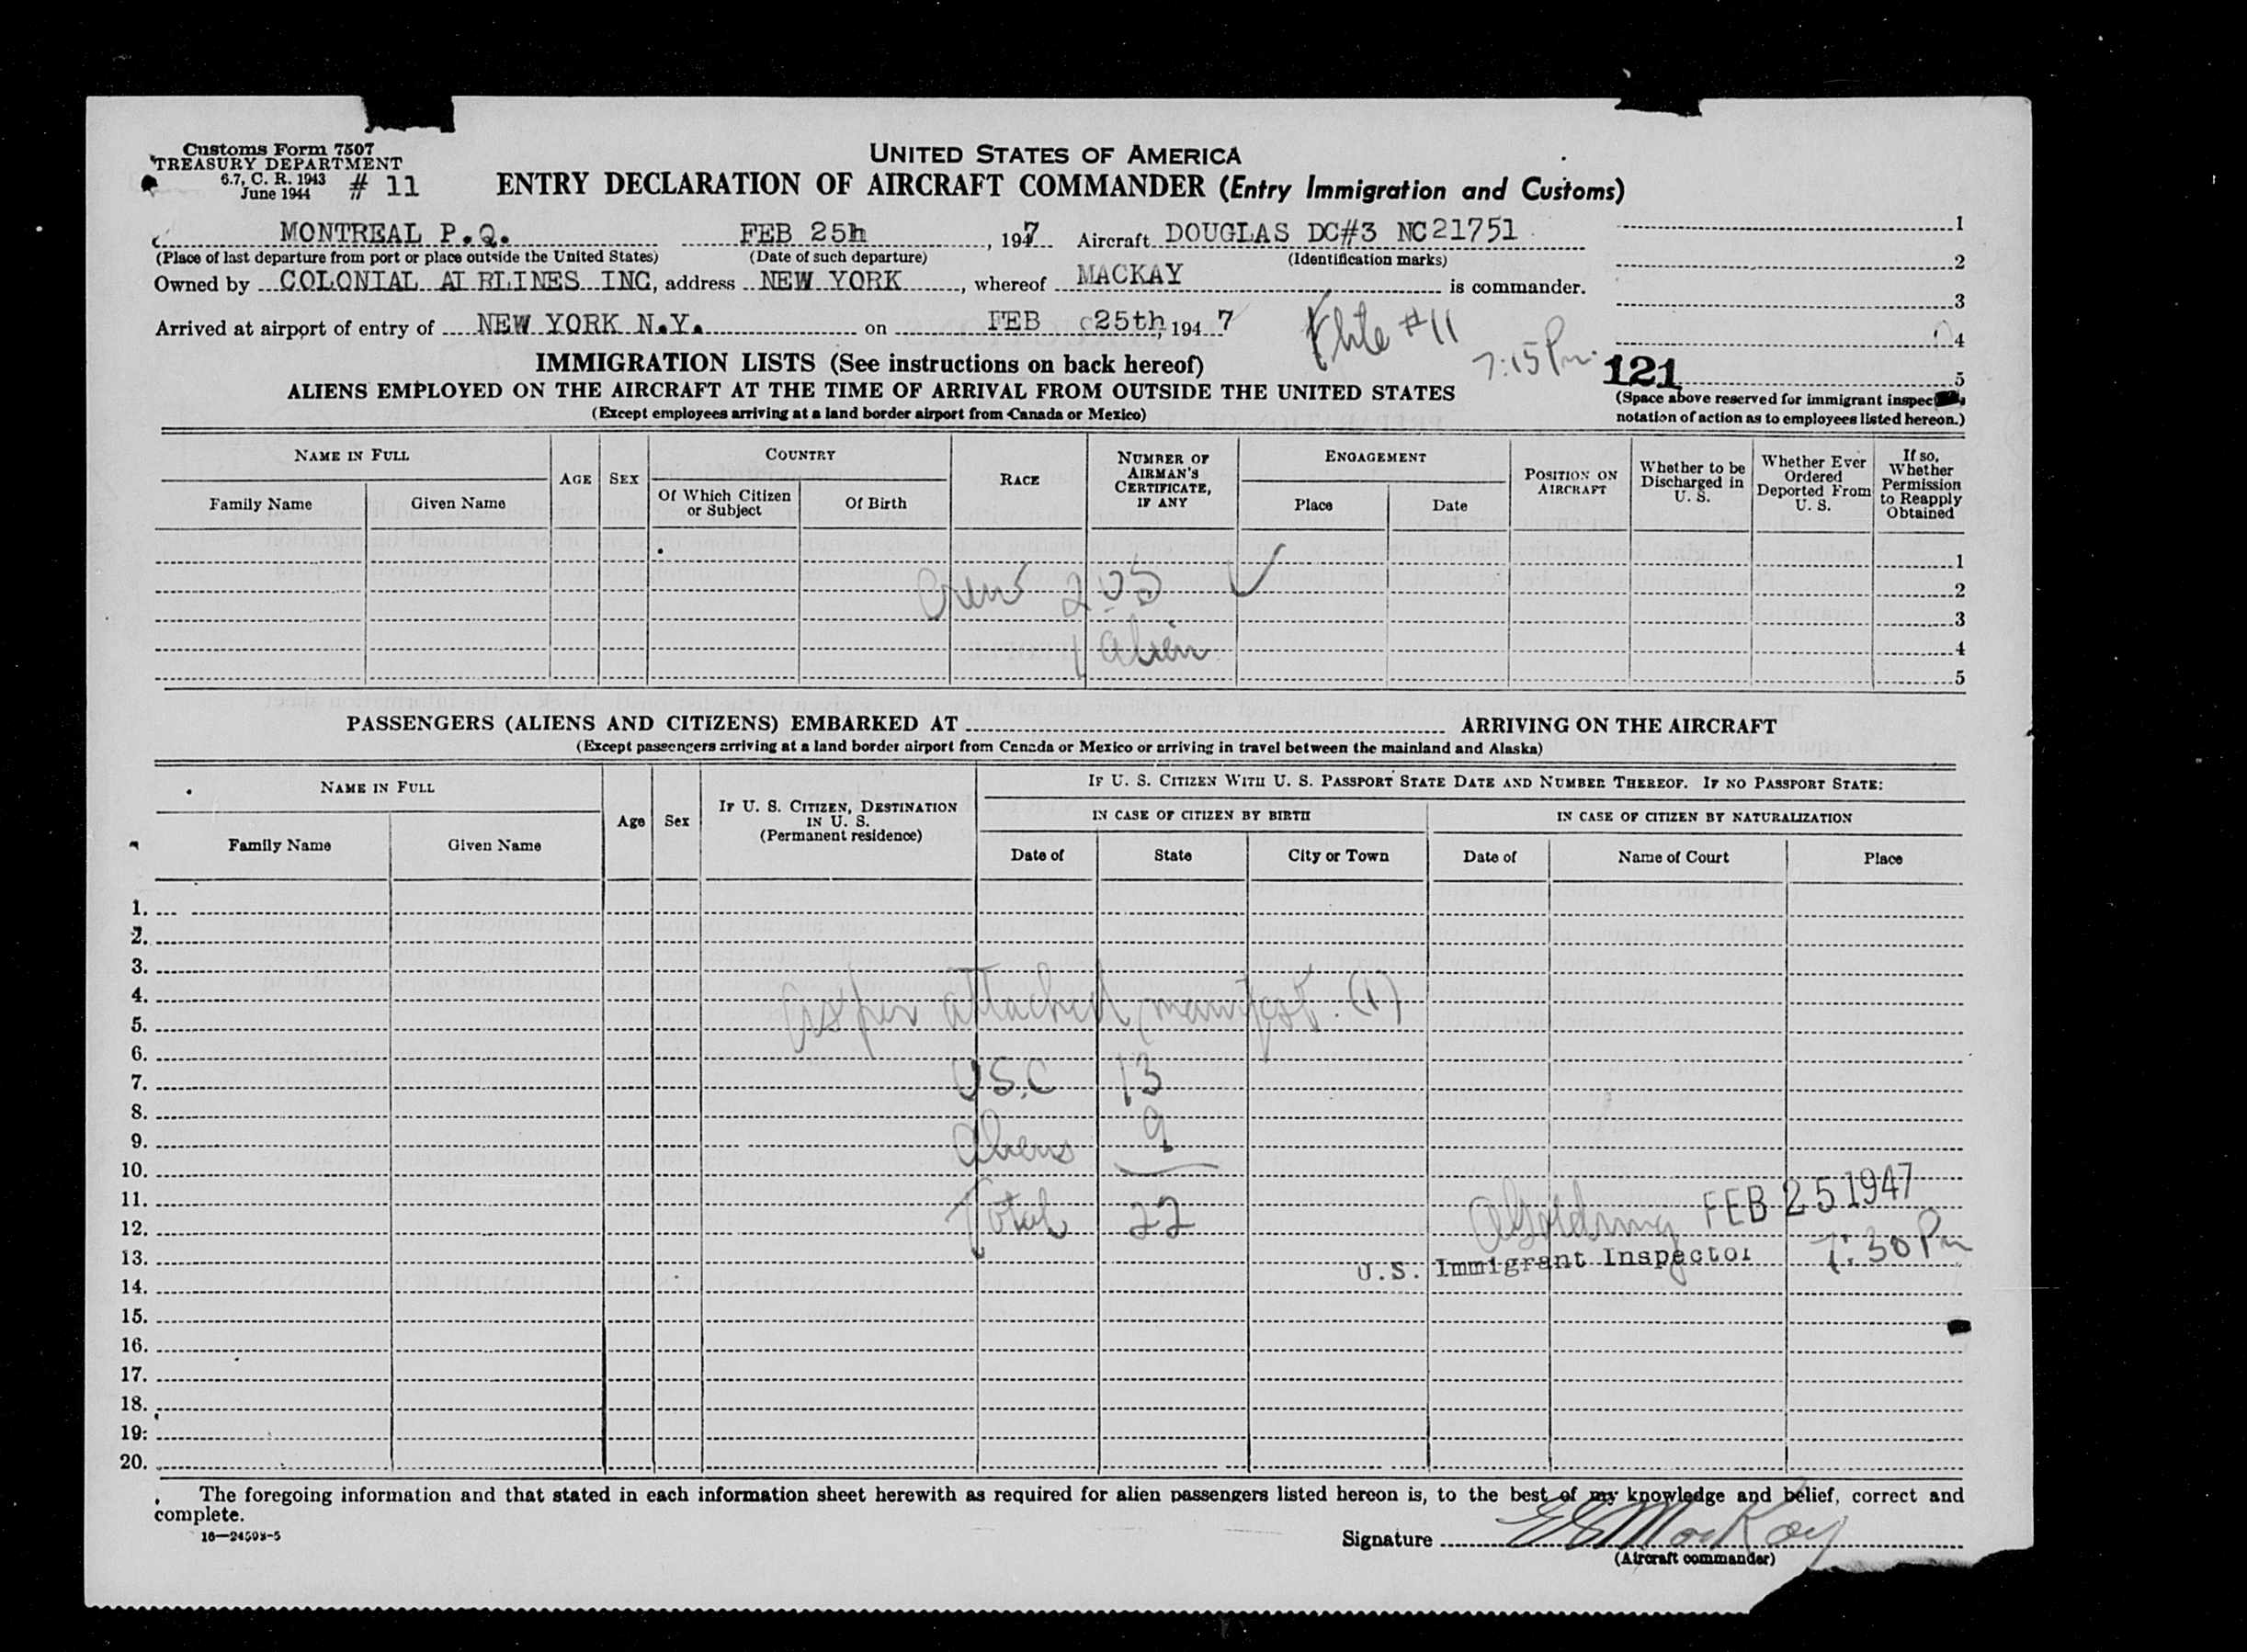 Customs Form 7507
TREASURY DEPARTMENT
6.7, C. R. 1943
June 1944
# 11
UNITED STATES OF AMERICA
ENTRY DECLARATION OF AIRCRAFT COMMANDER (Entry Immigration and Customs)
MONTREAL P.Q. FEB 25h, 1947 Aircraft DOUGLAS DC#3 NC21751
(Place of last departure from port or place outside the United States) (Date of such departure) (Identification marks)
Owned by COLONIAL AIRLINES INC, address NEW YORK, whereof MACKAY is commander.
Arrived at airport of entry of NEW YORK N.Y. on FEB 25th, 1947
#11
7:15 Pm.
1
2
3
4
121 5
(Space above reserved for immigrant inspec
notation of action as to employees listed hereon.)
IMMIGRATION LISTS (See instructions on back hereof)
ALIENS EMPLOYED ON THE AIRCRAFT AT THE TIME OF ARRIVAL FROM OUTSIDE THE UNITED STATES
(Except employees arriving at a land border airport from Canada or Mexico)
NAME IN FULL
Family Name Given Name
AGE
SEX
COUNTRY
Of Which Citizen or Subject
Of Birth
RACE
NUMBER OF AIRMAN'S CERTIFICATE, IF ANY
ENGAGEMENT
Place Date
POSITION ON AIRCRAFT
Whether to be Discharged in U. S.
Whether Ever Ordered Deported From U. S.
If so, Whether Permission to Reapply Obtained
1
Crew 2 US 2
3
1 Alien 4
5
PASSENGERS (ALIENS AND CITIZENS) EMBARKED AT ARRIVING ON THE AIRCRAFT
(Except passengers arriving at a land border airport from Canada or Mexico or arriving in travel between the mainland and Alaska)
NAME IN FULL
Family Name Given Name
Age
Sex
IF U. S. CITIZEN, DESTINATION IN U. S.
(Permanent residence)
IF U. S. CITIZEN WITH U. S. PASSPORT STATE DATE AND NUMBER THEREOF. IF NO PASSPORT STATE:
IN CASE OF CITIZEN BY BIRTH
Date of State City or Town
IN CASE OF CITIZEN BY NATURALIZATION
Date of Name of Court Place
1.
2.
3.
4. As per attached manifest. (1)
5.
6.
7. USC 13
8.
9. Aliens 9
10.
11. FEB 25 1947
12. Total 22
13. U.S. Immigrant Inspector 7:30 Pm
14.
15.
16.
17.
18.
19:
20.
The foregoing information and that stated in each information sheet herewith as required for alien passengers listed hereon is, to the best of my knowledge and belief, correct and
complete.
16—24598-5
Signature E MacKay
(Aircraft commander)